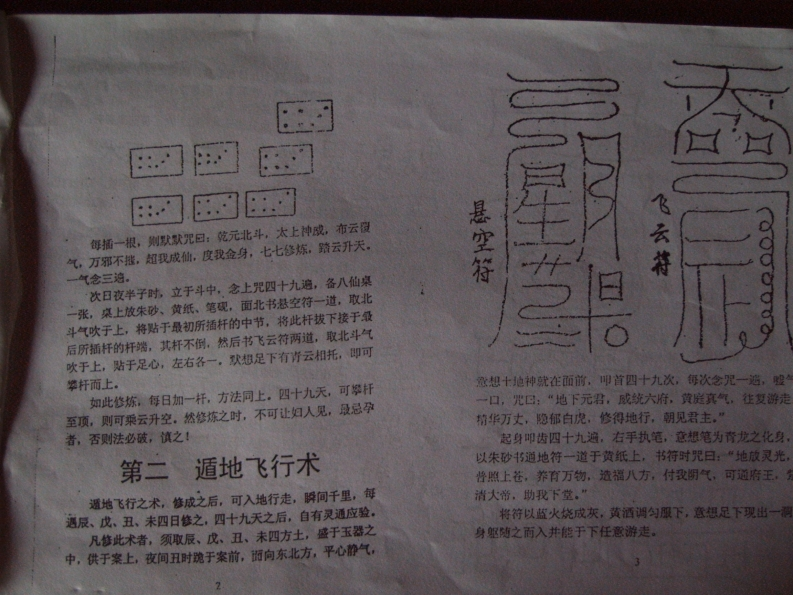 每插一根，则默默咒曰：乾元北斗，太上神威，布云覆
气，万邪不摧，超我成仙，度我金身，七七修炼，踏云升天。
一气念三遍。
次日夜半子时，立于斗中，念上咒四十九遍，备八仙桌
一张，桌上放朱砂、黄纸、笔砚，面北书悬空符一道，取北
斗气吹于上，将贴于最初所插杆的中节，将此杆拔下接于最
后所插杆的杆端，其杆不倒，然后书飞云符两道，取北斗气
吹于上，贴于足心，左右各一。默想足下有青云相托，即可
攀杆而上。
如此修炼，每日加一杆，方法同上。四十九天，可攀杆
至顶，则可乘云升空。然修炼之时，不可让妇人见，最忌孕
者，否则法必破，慎之！
第二 遁地飞行术
遁地飞行之术，修成之后，可入地行走，瞬间千里，每
遇辰、戊、丑、未四日修之，四十九天之后，自有灵通应验。
凡修此术者，须取辰、戊、丑、未四方土，盛于玉器之
中，供于案上，夜间丑时跪于案前，面向东北方，平心静气，
2
悬空符
飞云符
意想十地神就在面前，叩首四十九次，每次念咒一遍，嘘气
一口，咒曰：“地下元君，威统六府，黄庭真气，往复游走
精华万丈，隐郁白虎，修得地行，朝见君主。”
起身叩齿四十九遍，右手执笔，意想笔为青龙之化身，
以朱砂书通地符一道于黄纸上，书符时咒曰：“地放灵光，
普照上苍，养育万物，造福八方，付我阴气，可通府王，
清大帝，助我下堂。”
将符以蓝火烧成灰，黄酒调匀服下，意想足下现出一洞
身躯随之而入并能于下任意游走。
3